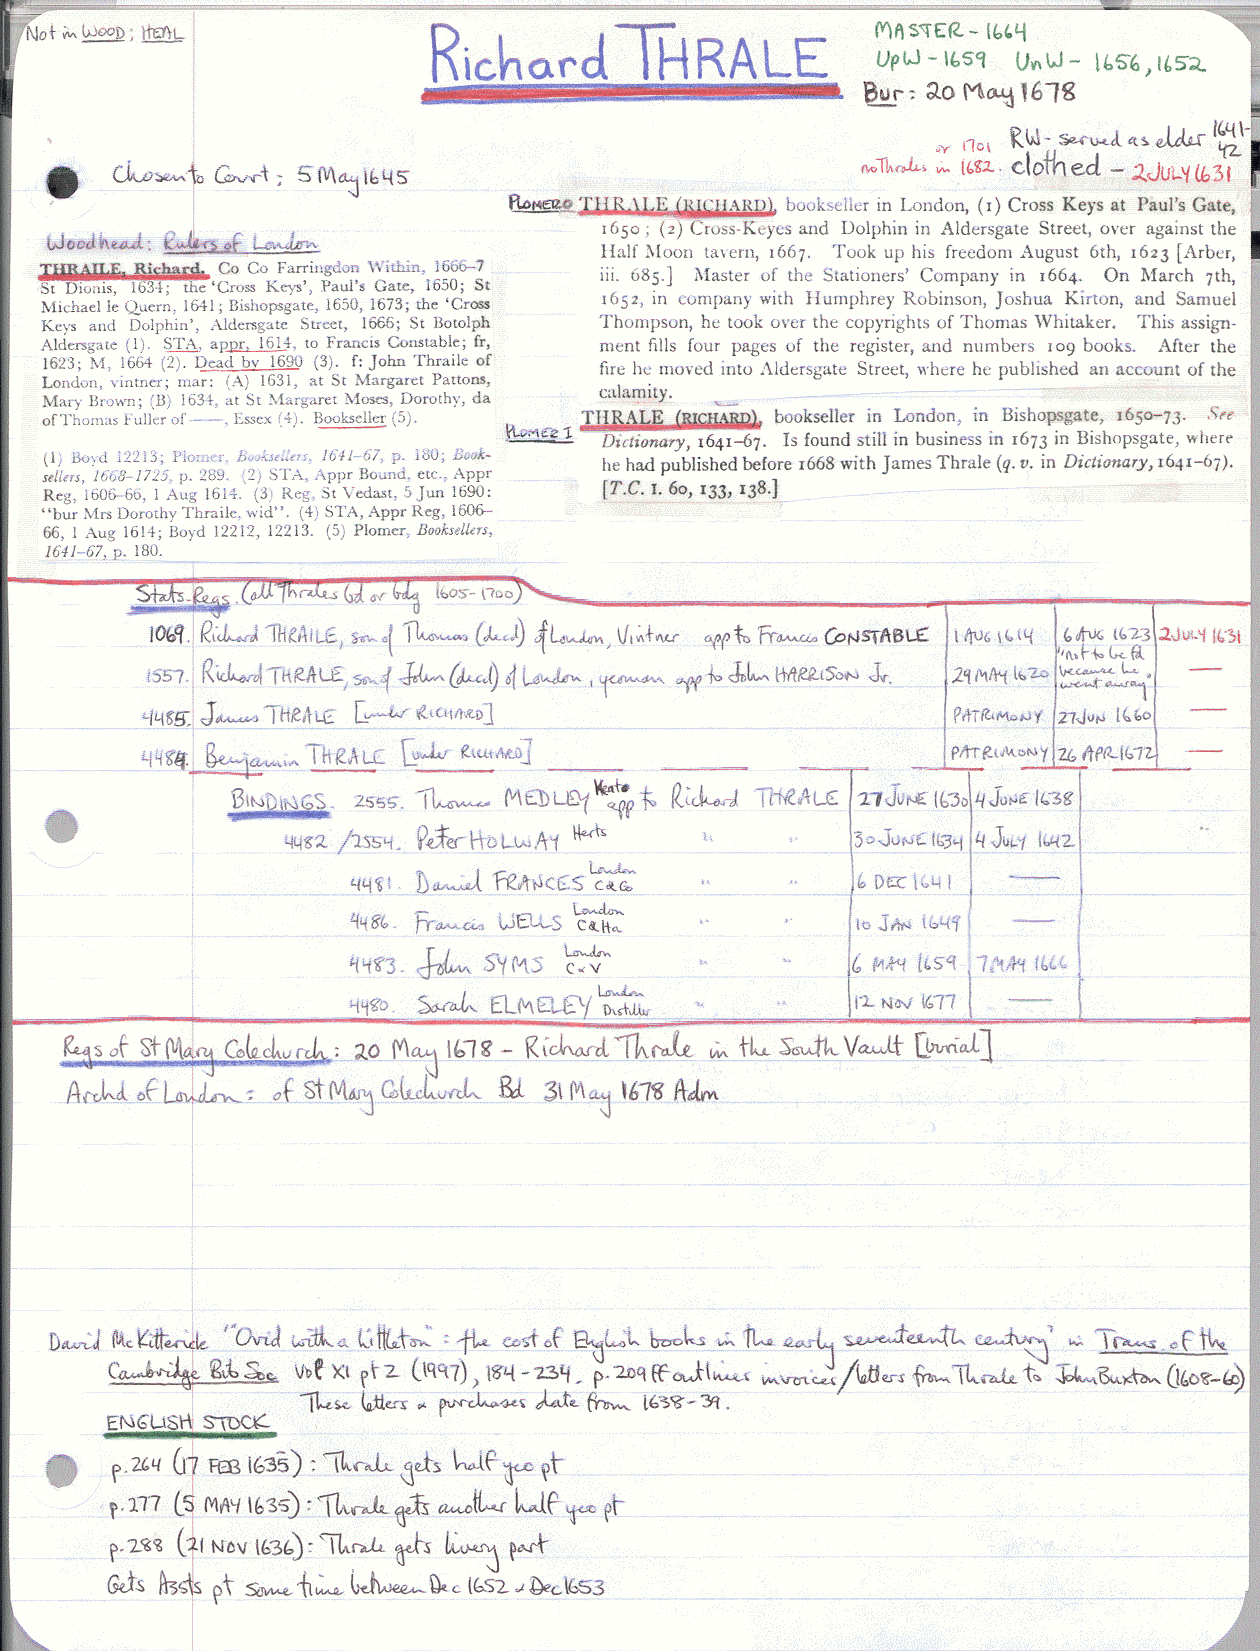 Not in WOOD; HEAL
Richard THRALE
MASTER - 1664
UpW - 1659 UnW - 1656, 1652
Bur: 20 May 1678
RW - served as elder 1641-42
or 1701
no Thrales in 1682. clothed - 2 JULY 1631
Chosen to Court; 5 May 1645
Woodhead: Rulers of London
THRAILE, Richard. Co Co Farringdon Within, 1666–7
St Dionis, 1634; the 'Cross Keys', Paul's Gate, 1650; St
Michael le Quern, 1641; Bishopsgate, 1650, 1673; the 'Cross
Keys and Dolphin', Aldersgate Street, 1666; St Botolph
Aldersgate (1). STA, appr, 1614, to Francis Constable; fr,
1623; M, 1664 (2). Dead by 1690 (3). f: John Thraile of
London, vintner; mar: (A) 1631, at St Margaret Pattons,
Mary Brown; (B) 1634, at St Margaret Moses, Dorothy, da
of Thomas Fuller of ——, Essex (4). Bookseller (5).
(1) Boyd 12213; Plomer, Booksellers, 1641–67, p. 180; Book-
sellers, 1668–1725, p. 289. (2) STA, Appr Bound, etc., Appr
Reg, 1606–66, 1 Aug 1614. (3) Reg, St Vedast, 5 Jun 1690:
"bur Mrs Dorothy Thraile, wid". (4) STA, Appr Reg, 1606–
66, 1 Aug 1614; Boyd 12212, 12213. (5) Plomer, Booksellers,
1641–67, p. 180.
PLOMER 0 THRALE (RICHARD), bookseller in London, (1) Cross Keys at Paul's Gate,
1650; (2) Cross-Keyes and Dolphin in Aldersgate Street, over against the
Half Moon tavern, 1667. Took up his freedom August 6th, 1623 [Arber,
iii. 685.] Master of the Stationers' Company in 1664. On March 7th,
1652, in company with Humphrey Robinson, Joshua Kirton, and Samuel
Thompson, he took over the copyrights of Thomas Whitaker. This assign-
ment fills four pages of the register, and numbers 109 books. After the
fire he moved into Aldersgate Street, where he published an account of the
calamity.
PLOMER I THRALE (RICHARD), bookseller in London, in Bishopsgate, 1650-73. See
Dictionary, 1641-67. Is found still in business in 1673 in Bishopsgate, where
he had published before 1668 with James Thrale (q. v. in Dictionary, 1641-67).
[T.C. I. 60, 133, 138.]
Stats-Regs. (all Thrales bd or bdg 1605-1700)
1069. Richard THRAILE, son of Thomas (decd) of London, Vintner app to Francis CONSTABLE 1 AUG 1614 6 AUG 1623 2 JULY 1631
1557. Richard THRALE, son of John (decd) of London, yeoman app to John HARRISON Jr. 29 MAY 1620 "not to be fd because he went away." —
4485. James THRALE [under RICHARD] PATRIMONY 27 JUN 1660 —
4484. Benjamin THRALE [under RICHARD] PATRIMONY 26 APR 1672 —
BINDINGS. 2555. Thomas MEDLEY Kent app to Richard THRALE 27 JUNE 1630 4 JUNE 1638
4482 / 2554. Peter HOLWAY Herts " " 30 JUNE 1634 4 JULY 1642
4481. Daniel FRANCES London C&Co " " 6 DEC 1641 —
4486. Francis WELLS London C&Ha " " 10 JAN 1649 —
4483. John SYMS London C&V " " 6 MAY 1659 7 MAY 1666
4480. Sarah ELMELEY London Distiller " " 12 NOV 1677 —
Regs of St Mary Colechurch: 20 May 1678 - Richard Thrale in the South Vault [burial]
Archd of London: of St Mary Colechurch Bd 31 May 1678 Adm
David McKitterick "'Ovid with a Littleton': the cost of English books in the early seventeenth century" in Trans. of the
Cambridge Bib Soc Vol XI pt 2 (1997), 184-234. p. 209ff outlines invoices/letters from Thrale to John Buxton (1608-60)
These letters & purchases date from 1638-39.
ENGLISH STOCK
p. 264 (17 FEB 1635): Thrale gets half yeo pt
p. 277 (5 MAY 1635): Thrale gets another half yeo pt
p. 288 (21 NOV 1636): Thrale gets livery part
Gets Assts pt some time between Dec 1652 & Dec 1653